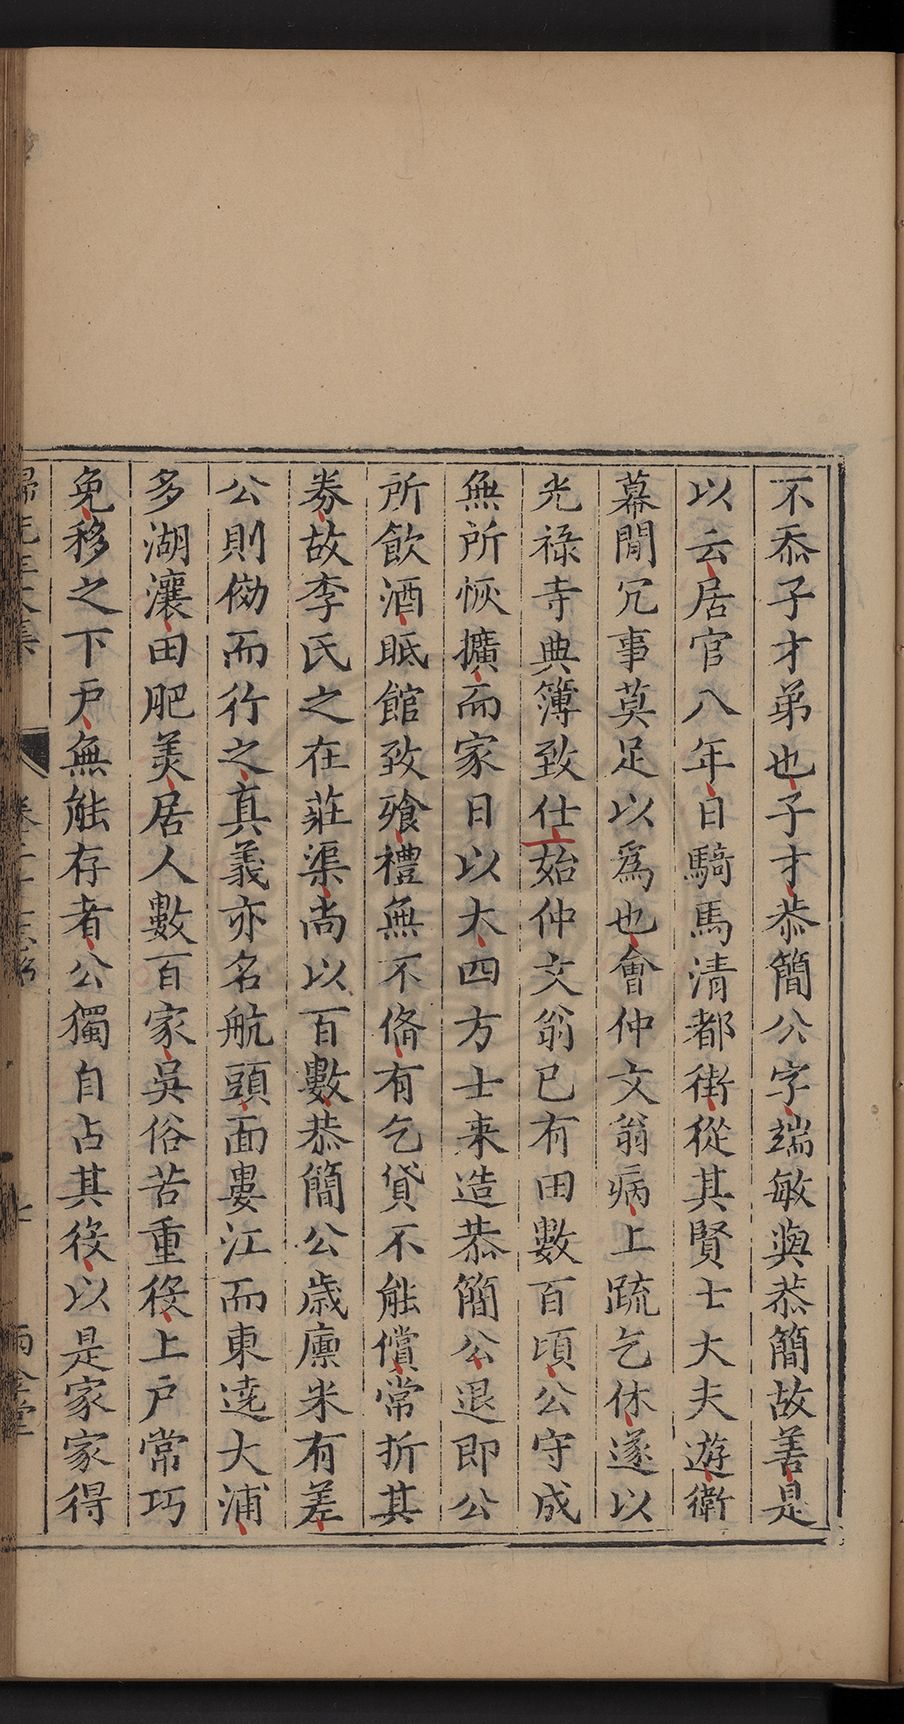 不忝子才弟也子才恭簡公字端敏與恭簡故善是
以云居官八年日騎馬清都街從其賢士大夫遊衛
幕閒冗事莫足以爲也會仲文翁病上疏乞休遂以
光祿寺典簿致仕始仲文翁已有田數百頃公守成
無所恢擴而家日以大四方士来造恭簡公退即公
所飲酒眂館致飱禮無不脩有乞貸不能償常折其
券故李氏之在莊渠尚以百數恭簡公歳廪米有差
公則傚而行之真義亦名航頭面婁江而東遶大浦
多湖瀼田肥美居人數百家吳俗苦重役上戶常巧
免移之下戶無能存者公獨自占其役以是家家得